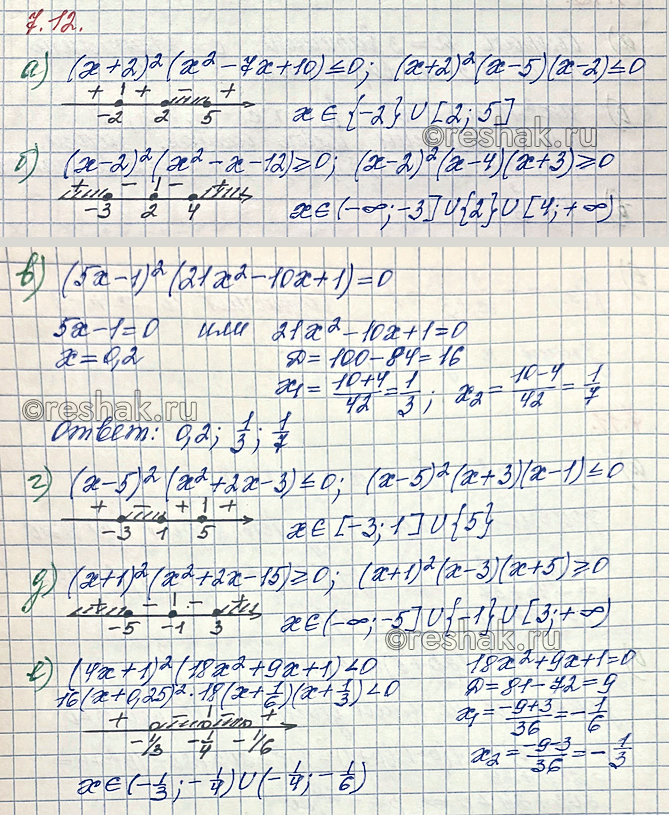 7.12.
а) (x+2)² (x² - 7x+10) ≤ 0; (x+2)² (x-5)(x-2) ≤ 0
+ + - +
-2 2 5 x ∈ {-2} U [2; 5]
©reshak.ru
б) (x-2)² (x² - x - 12) ≥ 0; (x-2)² (x-4)(x+3) ≥ 0
+ - - +
-3 2 4 x ∈ (-∞; -3] U {2} U [4; +∞)
в) (5x-1)² (21x² - 10x+1) = 0
5x-1=0 или 21x² - 10x+1=0
x=0,2 D = 100-84=16
x₁ = 10+4/42 = 1/3; x₂ = 10-4/42 = 1/7
©reshak.ru
Ответ: 0,2; 1/3; 1/7
г) (x-5)² (x²+2x-3) ≤ 0; (x-5)² (x+3)(x-1) ≤ 0
+ - + +
-3 1 5 x ∈ [-3; 1] U {5}
д) (x+1)² (x²+2x-15) ≥ 0; (x+1)² (x-3)(x+5) ≥ 0
+ - - +
-5 -1 3 x ∈ (-∞; -5] U {-1} U [3; +∞)
©reshak.ru
е) (4x+1)² (18x²+9x+1) < 0 18x²+9x+1=0
16(x+0,25)² · 18(x+1/6)(x+1/3) < 0 D = 81-72=9
+ - - + x₁ = -9+3/36 = -1/6
-1/3 -1/4 -1/6 x₂ = -9-3/36 = -1/3
x ∈ (-1/3; -1/4) U (-1/4; -1/6)